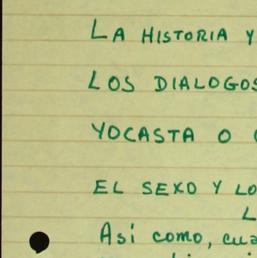 LA HISTORIA Y
LOS DIALOGOS
YOCASTA O
EL SEXO Y LO
L
Así como, cua